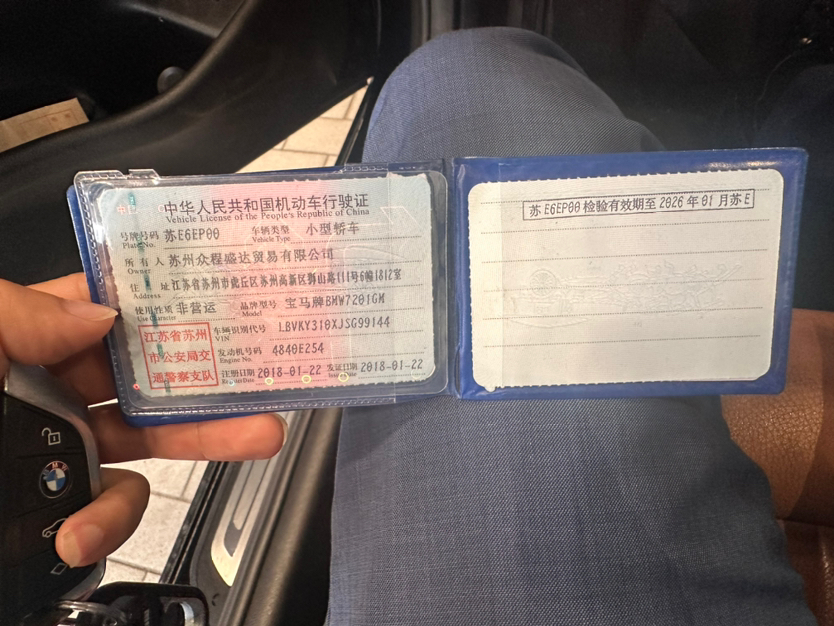 中华人民共和国机动车行驶证
Vehicle License of the People's Republic of China
号牌号码 苏E6EP00 车辆类型 小型轿车
Plate No. Vehicle Type
所有人 苏州众程盛达贸易有限公司
Owner
住址 江苏省苏州市虎丘区苏州高新区狮山路111号6幢1812室
Address
使用性质 非营运 品牌型号 宝马牌BMW7201GM
Use Character Model
车辆识别代号 LBVKY310XJSG99144
VIN
发动机号码 4840E254
Engine No.
注册日期 2018-01-22 发证日期 2018-01-22
Register Date Issue Date
江苏省苏州
市公安局交
通警察支队
苏E6EP00检验有效期至2026年01月苏E
BMW